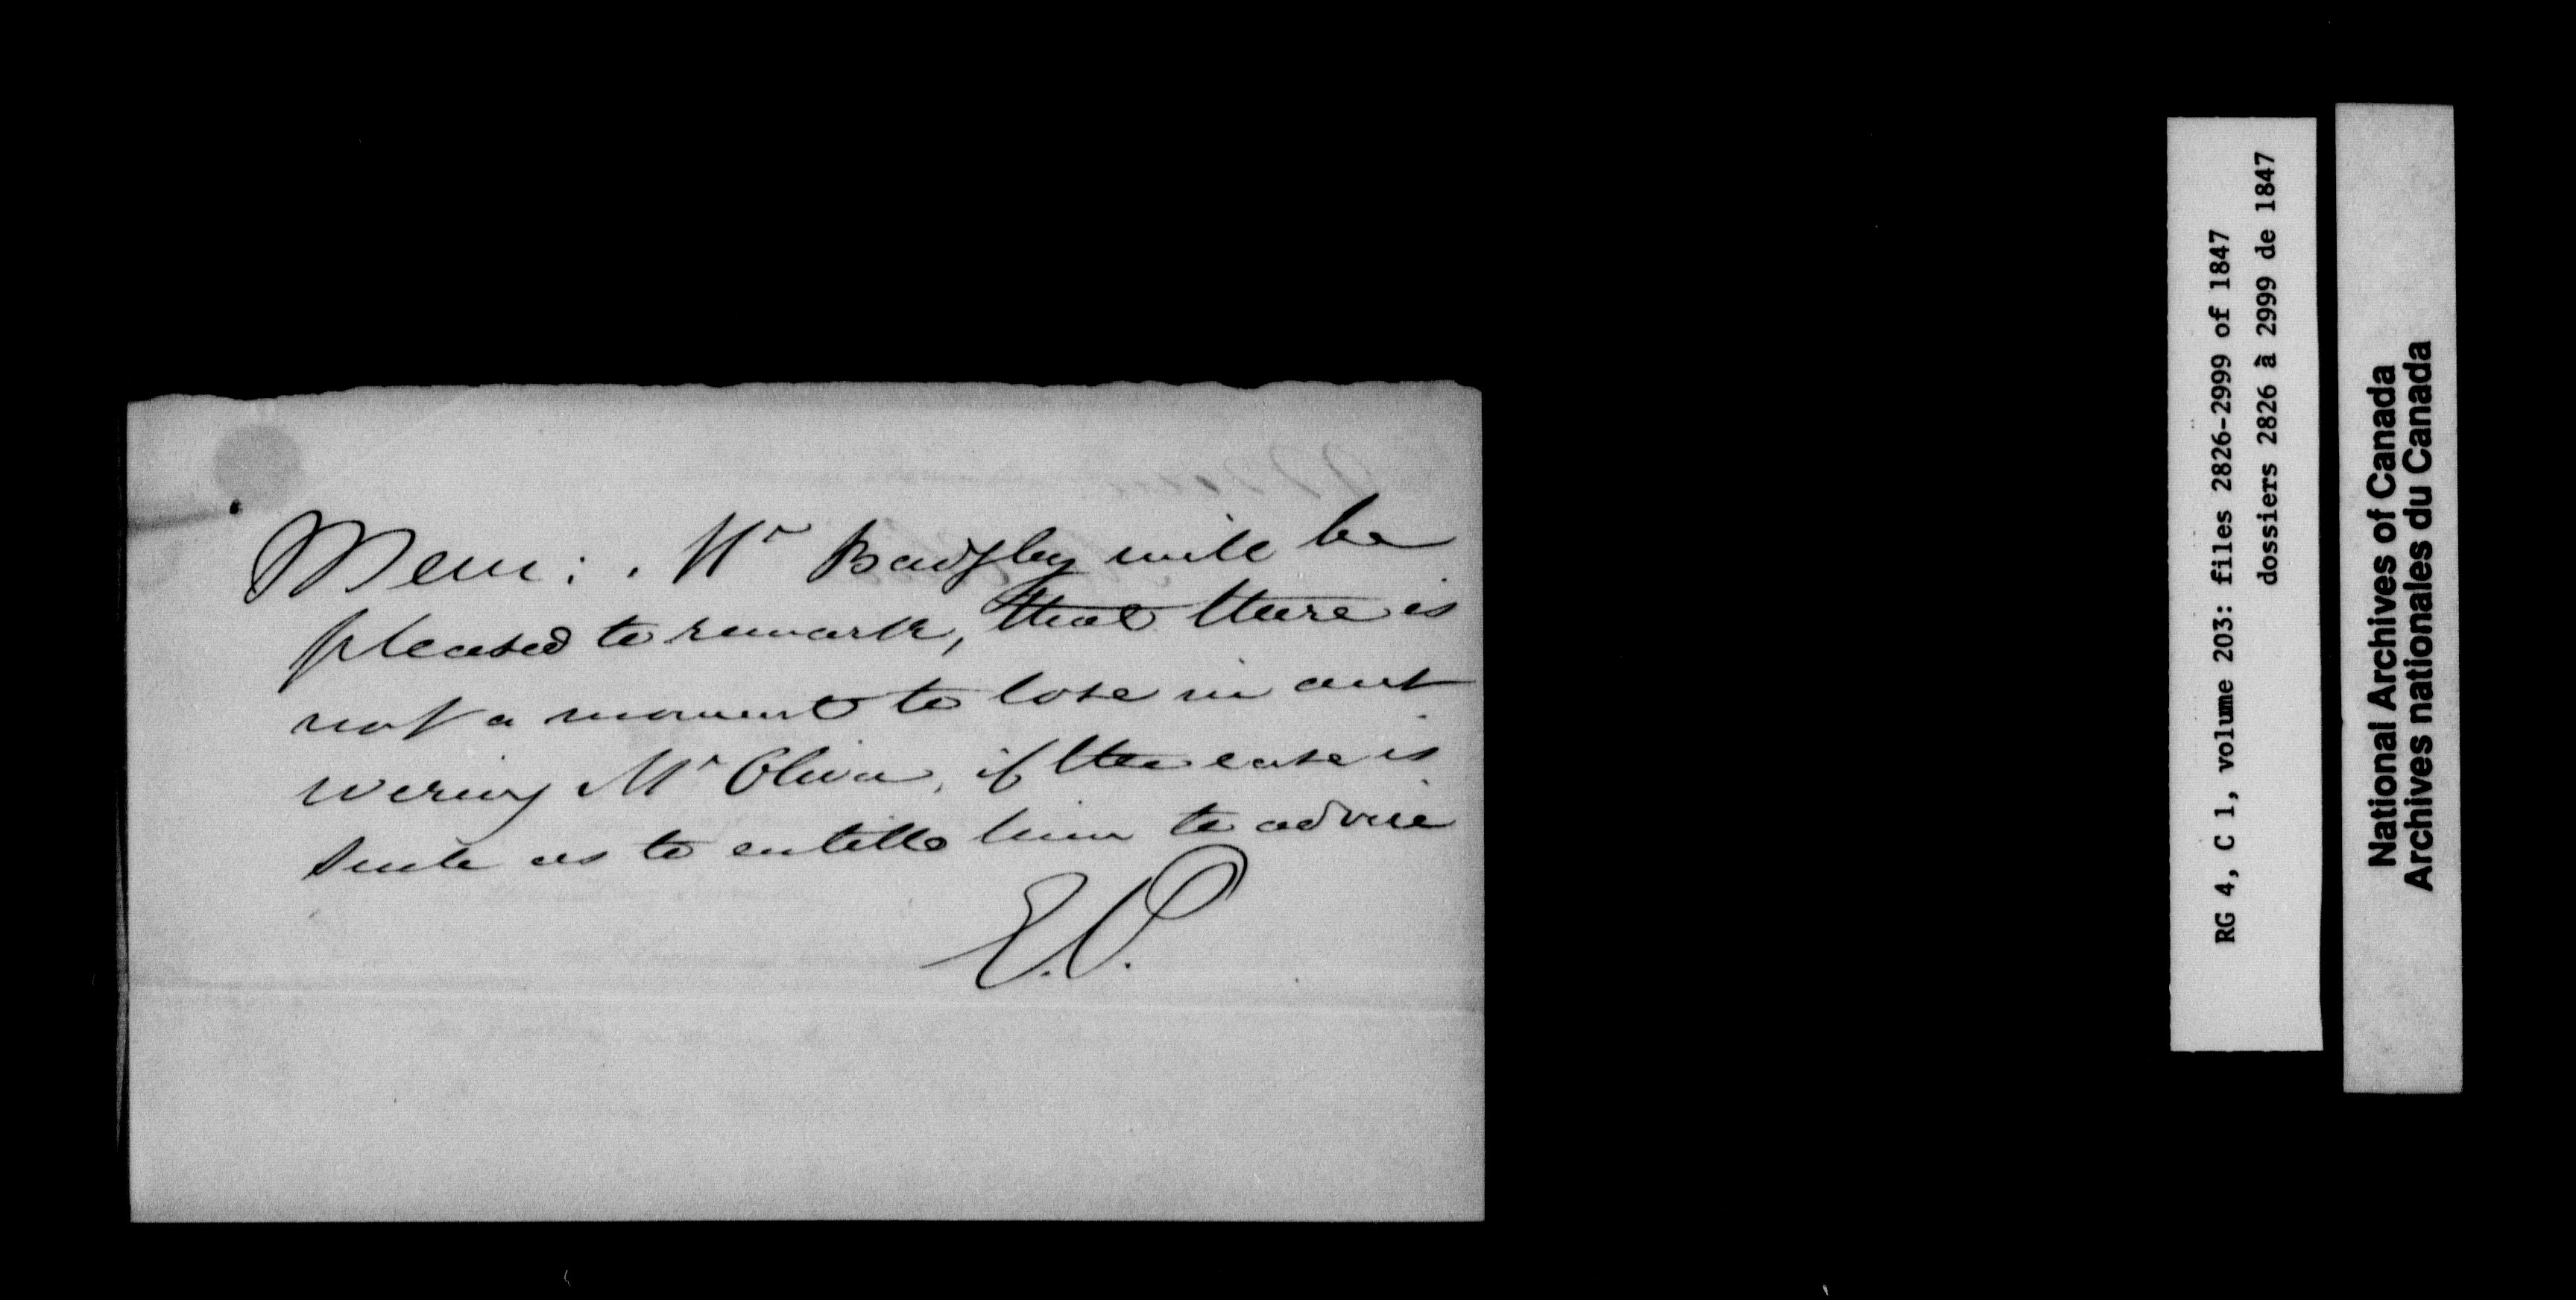 Mem: . Mr Badgley will be
pleased to remark, that there is
not a moment to lose in ans
wering Mr Oliva, if the case is
such as to entitle him to advice
E.P.
RG 4, C 1, volume 203: files 2826-2999 of 1847
dossiers 2826 à 2999 de 1847
National Archives of Canada
Archives nationales du Canada